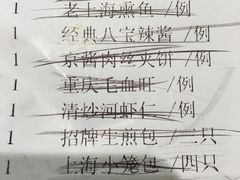 1 老上海熏鱼 /例
1 经典八宝辣酱 /例
1 京酱肉丝夹饼 /例
1 重庆毛血旺 /例
1 清炒河虾仁 /例
1 招牌生煎包 /三只
1 上海小笼包 /四只